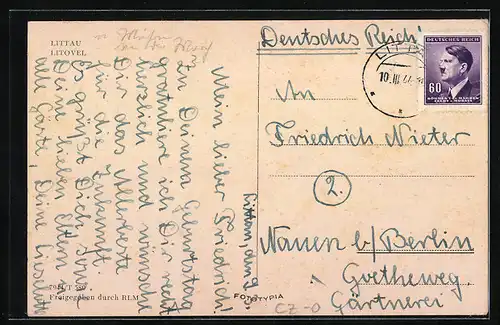 LITTAU
LITOVEL
Deutsches Reich!
LITTAU
10.III.44
DEUTSCHES REICH
60
BÖHMEN U. MÄHREN
ČECHY A MORAVA
An
Friedrich Nieter
2.
Nauen b/Berlin
Goetheweg
Gärtnerei
Littau, den 9.
Mein lieber Friedrich!
Zu Deinem Geburtstag
gratuliere ich Dir recht
herzlich und wünsche
Dir das Allerbeste
für die Zukunft.
Es grüßt Dich und
Deine lieben Eltern
alle Gärtn. Deine
Freigegeben durch RLM
FOTOTYPIA
CZ-O